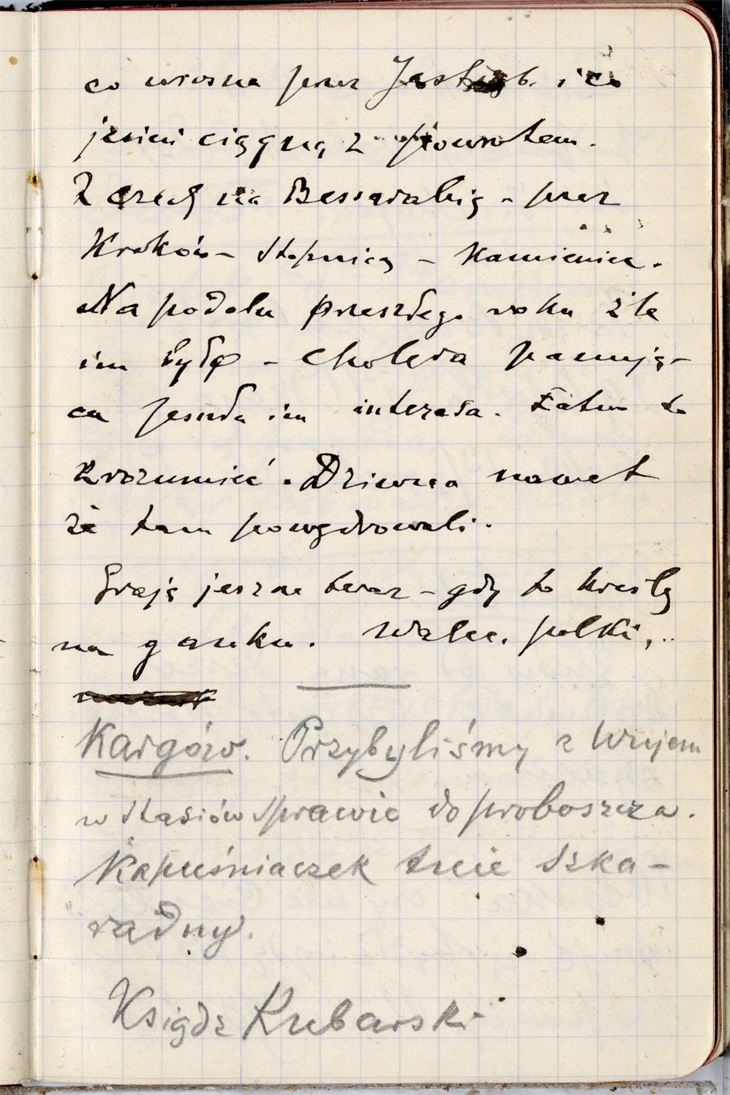 co wiosna przez Jastrzęb. i co
jesieni ciągną z powrotem.
Z Czech na Bessarabię – przez
Kraków – Stopnicę – Kamieniec.
Na podolu przeszłego roku źle
im było – Cholera panują-
ca psuła im interesa. Łatwo to
zrozumieć. Dziwna nawet
że tam powędrowali.
Grają jeszcze teraz – gdy to kreślę
na ganku. Walce, polki, ..
Kargów. Przybyliśmy z Wujem
w Stasiów sprawie do proboszcza.
Kapuśniaczek tnie szka-
radny.
Ksiądz Kubarski